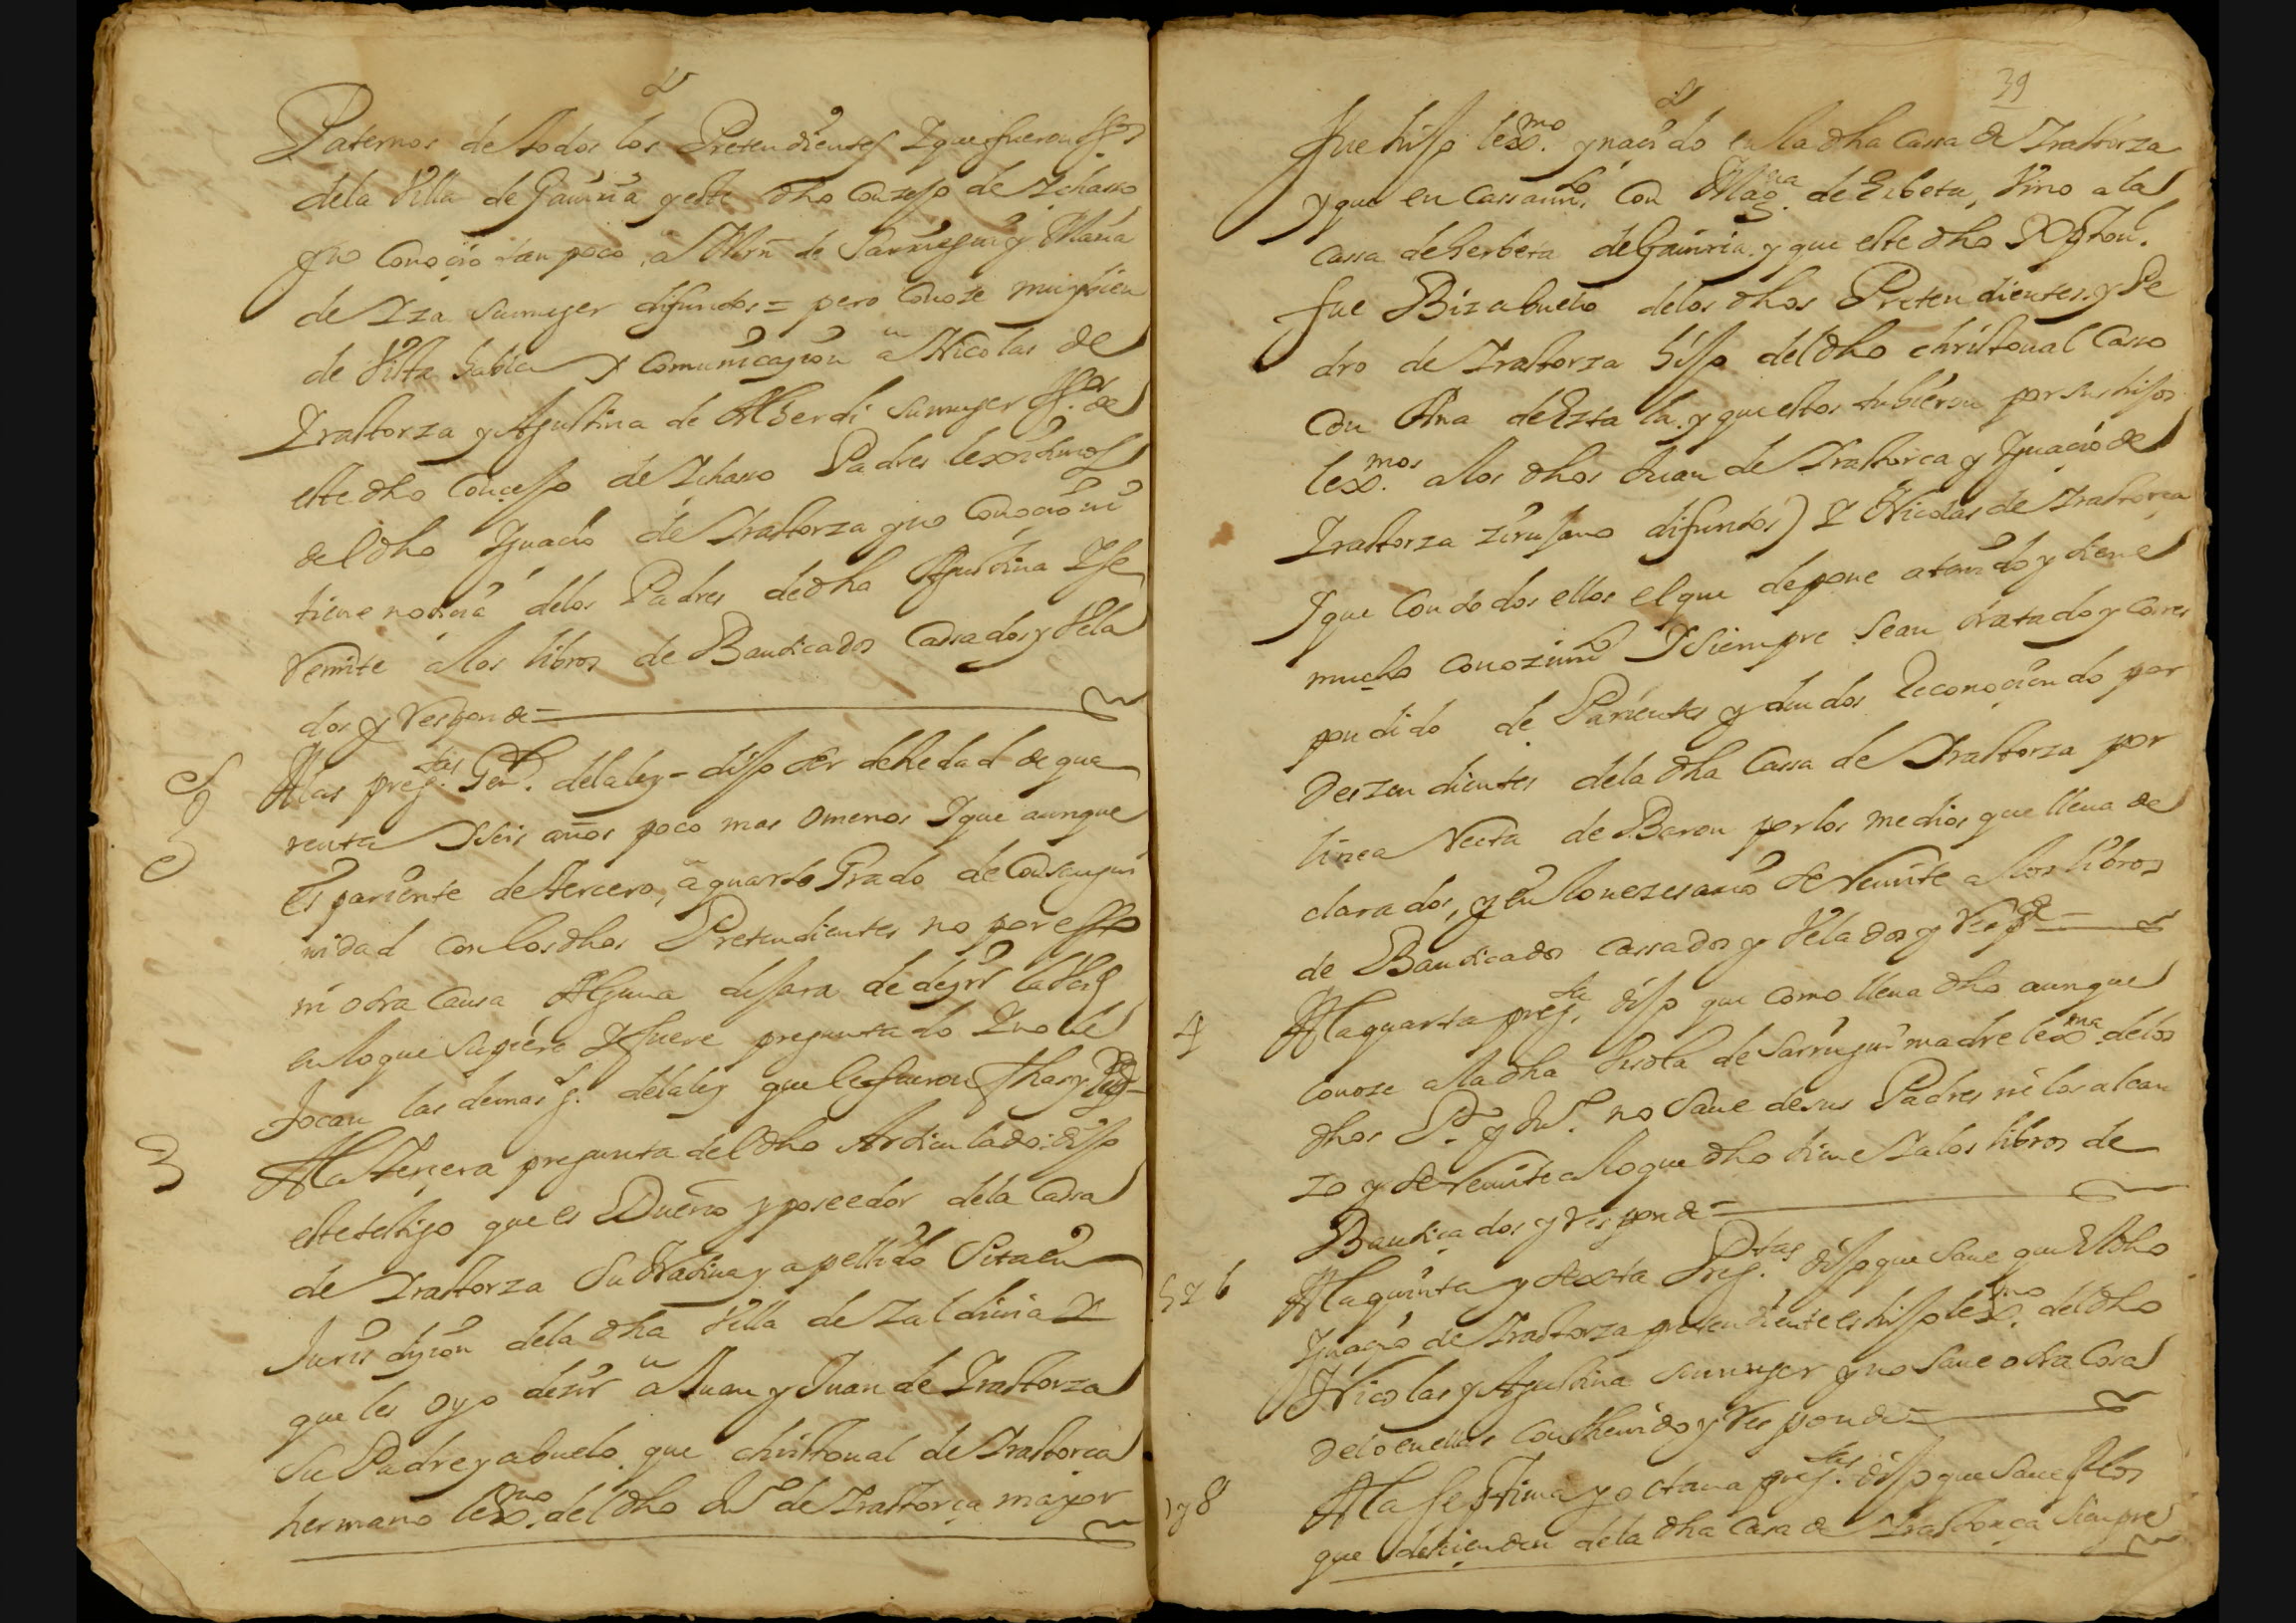 Paternos de todos los Pretendientes Y que fueron
dela Villa de Gauiria y este dho Conzejo de Ychasso
y no Conoçio tan poco a Mrn de Sarriegui y Maria
de Yza su muger difuntos = pero Conoze muy bien
de Vista habla Y Comunicaçion a Nicolas de
Yraltorza y Agustina de Alberdi su muger de
este dho Conçejo de Ychasso Padres lexitimos
del dho Ygnacio de Yraltorza y no Conoçio ni
tiene notiçia delos Padres de dha Agustina Y se
Remite a los libros de Bautiçados Cassados y Vela
dos y Responde =
A las preg.tas Gen.s dela ley = dijo ser de hedad de qua
renta Y seis años poco mas o menos Y que aunque
es pariente de terçero, a quarto Grado de Consangui
nidad con los dhos Pretendientes no por esso
ni otra Causa Alguna dejara de deçir la Verd
en lo que supiere Y fuere preguntado Y no le
tocan las demas g. dela ley que le fueron fhas y
3 A la Terçera pregunta del dho Articulado: dijo
este testigo que es Dueño y poseedor dela Cassa
de Yraltorza su Natiua y apellido Sita en
Jurisdiçion dela dha Villa de Zaldiuia Y
que les oyo dezir a Juan y Juan de Yraltorza
su Padre y abuelo que christoual de Yraltorça
hermano lexmo. del dho Ju.o de Yraltorça mayor
39
fue hijo lexmo. y naçido en la dha Cassa de Yraltorza
y que en Cassami.to Con Mag.na de Eribeta, Vino a la
Cassa de herbeta de Gauiria y que este dho Xpthoual.
fue Bizabuelo delos dhos Pretendientes, y Pe
dro de Yraltorza hijo del dho christoual Casso
con Ana de Ezta la, y que estos tubieron por sus hijos
lex.mos a los dhos Juan de Yraltorça y Ygnaçio de
Yraltorza Zirujano difuntos) Y Nicolas de Yraltorça
Y que Con todos ellos el que depone a tenido y tiene
mucho Conozimi.to Y siempre sean tratado y Corres
pondido de Parientes y deudos Reconoçiendo por
Deszendientes dela dha Cassa de Yraltorza por
linea Recta de Baron por los medios que lleua de
clarados, y en lo nezesario se Remite a los libros
de Bautiçados Cassados y Velados y Resp.de =
4 A la quarta preg.ta dijo que como lleua dho aunque
Conoze a la dha Ursola de Sarriegui madre lex.ma delos
dhos P.o y Ju.o no Saue de sus Padres ni los alcan
zo y se Remite a lo que dho tiene Y a los libros de
Bautiçados y Responde =
5 Y 6 A la quinta y sexta Preg.tas dijo que Saue que El dho
Ygnaçio de Yraltorza pretendiente es hijo lex.mo del dho
Nicolas y Agustina su muger y no Saue otra Cosa
Delo en ellas Conthenido y Responde =
7 y 8 A la septima y octaua preg.tas dijo que Saue q los
que deçienden dela dha Casa de Yraltorça siempre